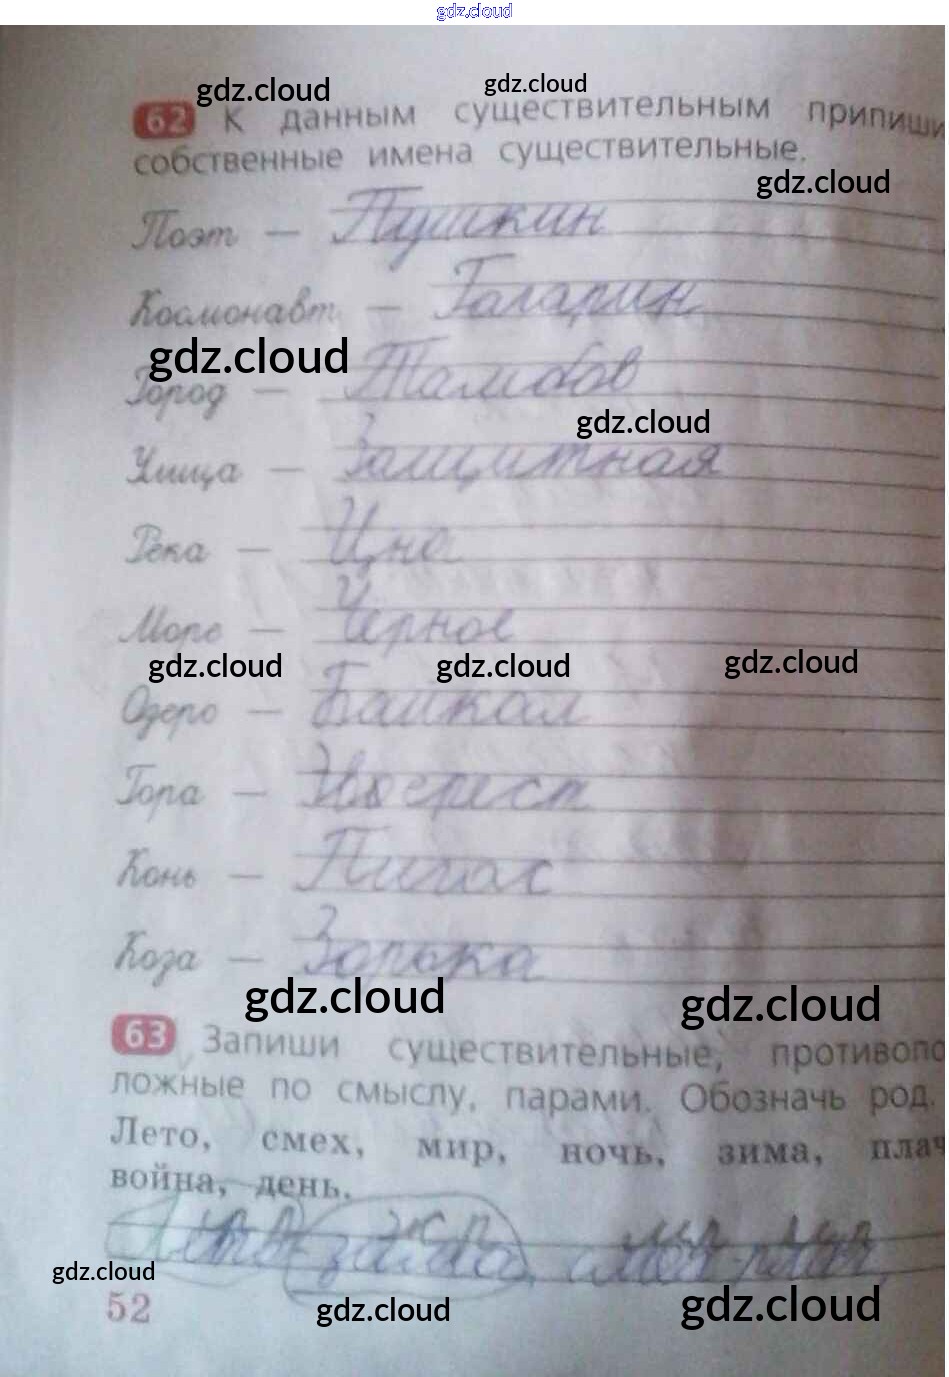 gdz.cloud
gdz.cloud
gdz.cloud
62 К данным существительным припиши
собственные имена существительные.
gdz.cloud
Поэт — Пушкин
Космонавт — Гагарин
gdz.cloud
Город — Тамбов
gdz.cloud
Улица — Защитная
Река — Цна
Море — Чёрное
gdz.cloud gdz.cloud gdz.cloud
Озеро — Байкал
Гора — Эверест
Конь — Пигас
Коза — Зорька
gdz.cloud gdz.cloud
63 Запиши существительные, противопо
ложные по смыслу, парами. Обозначь род.
Лето, смех, мир, ночь, зима, плач
война, день.
с.р. ж.р. м.р. м.р.
Лето-зима, смех-плач,
gdz.cloud
52
gdz.cloud gdz.cloud